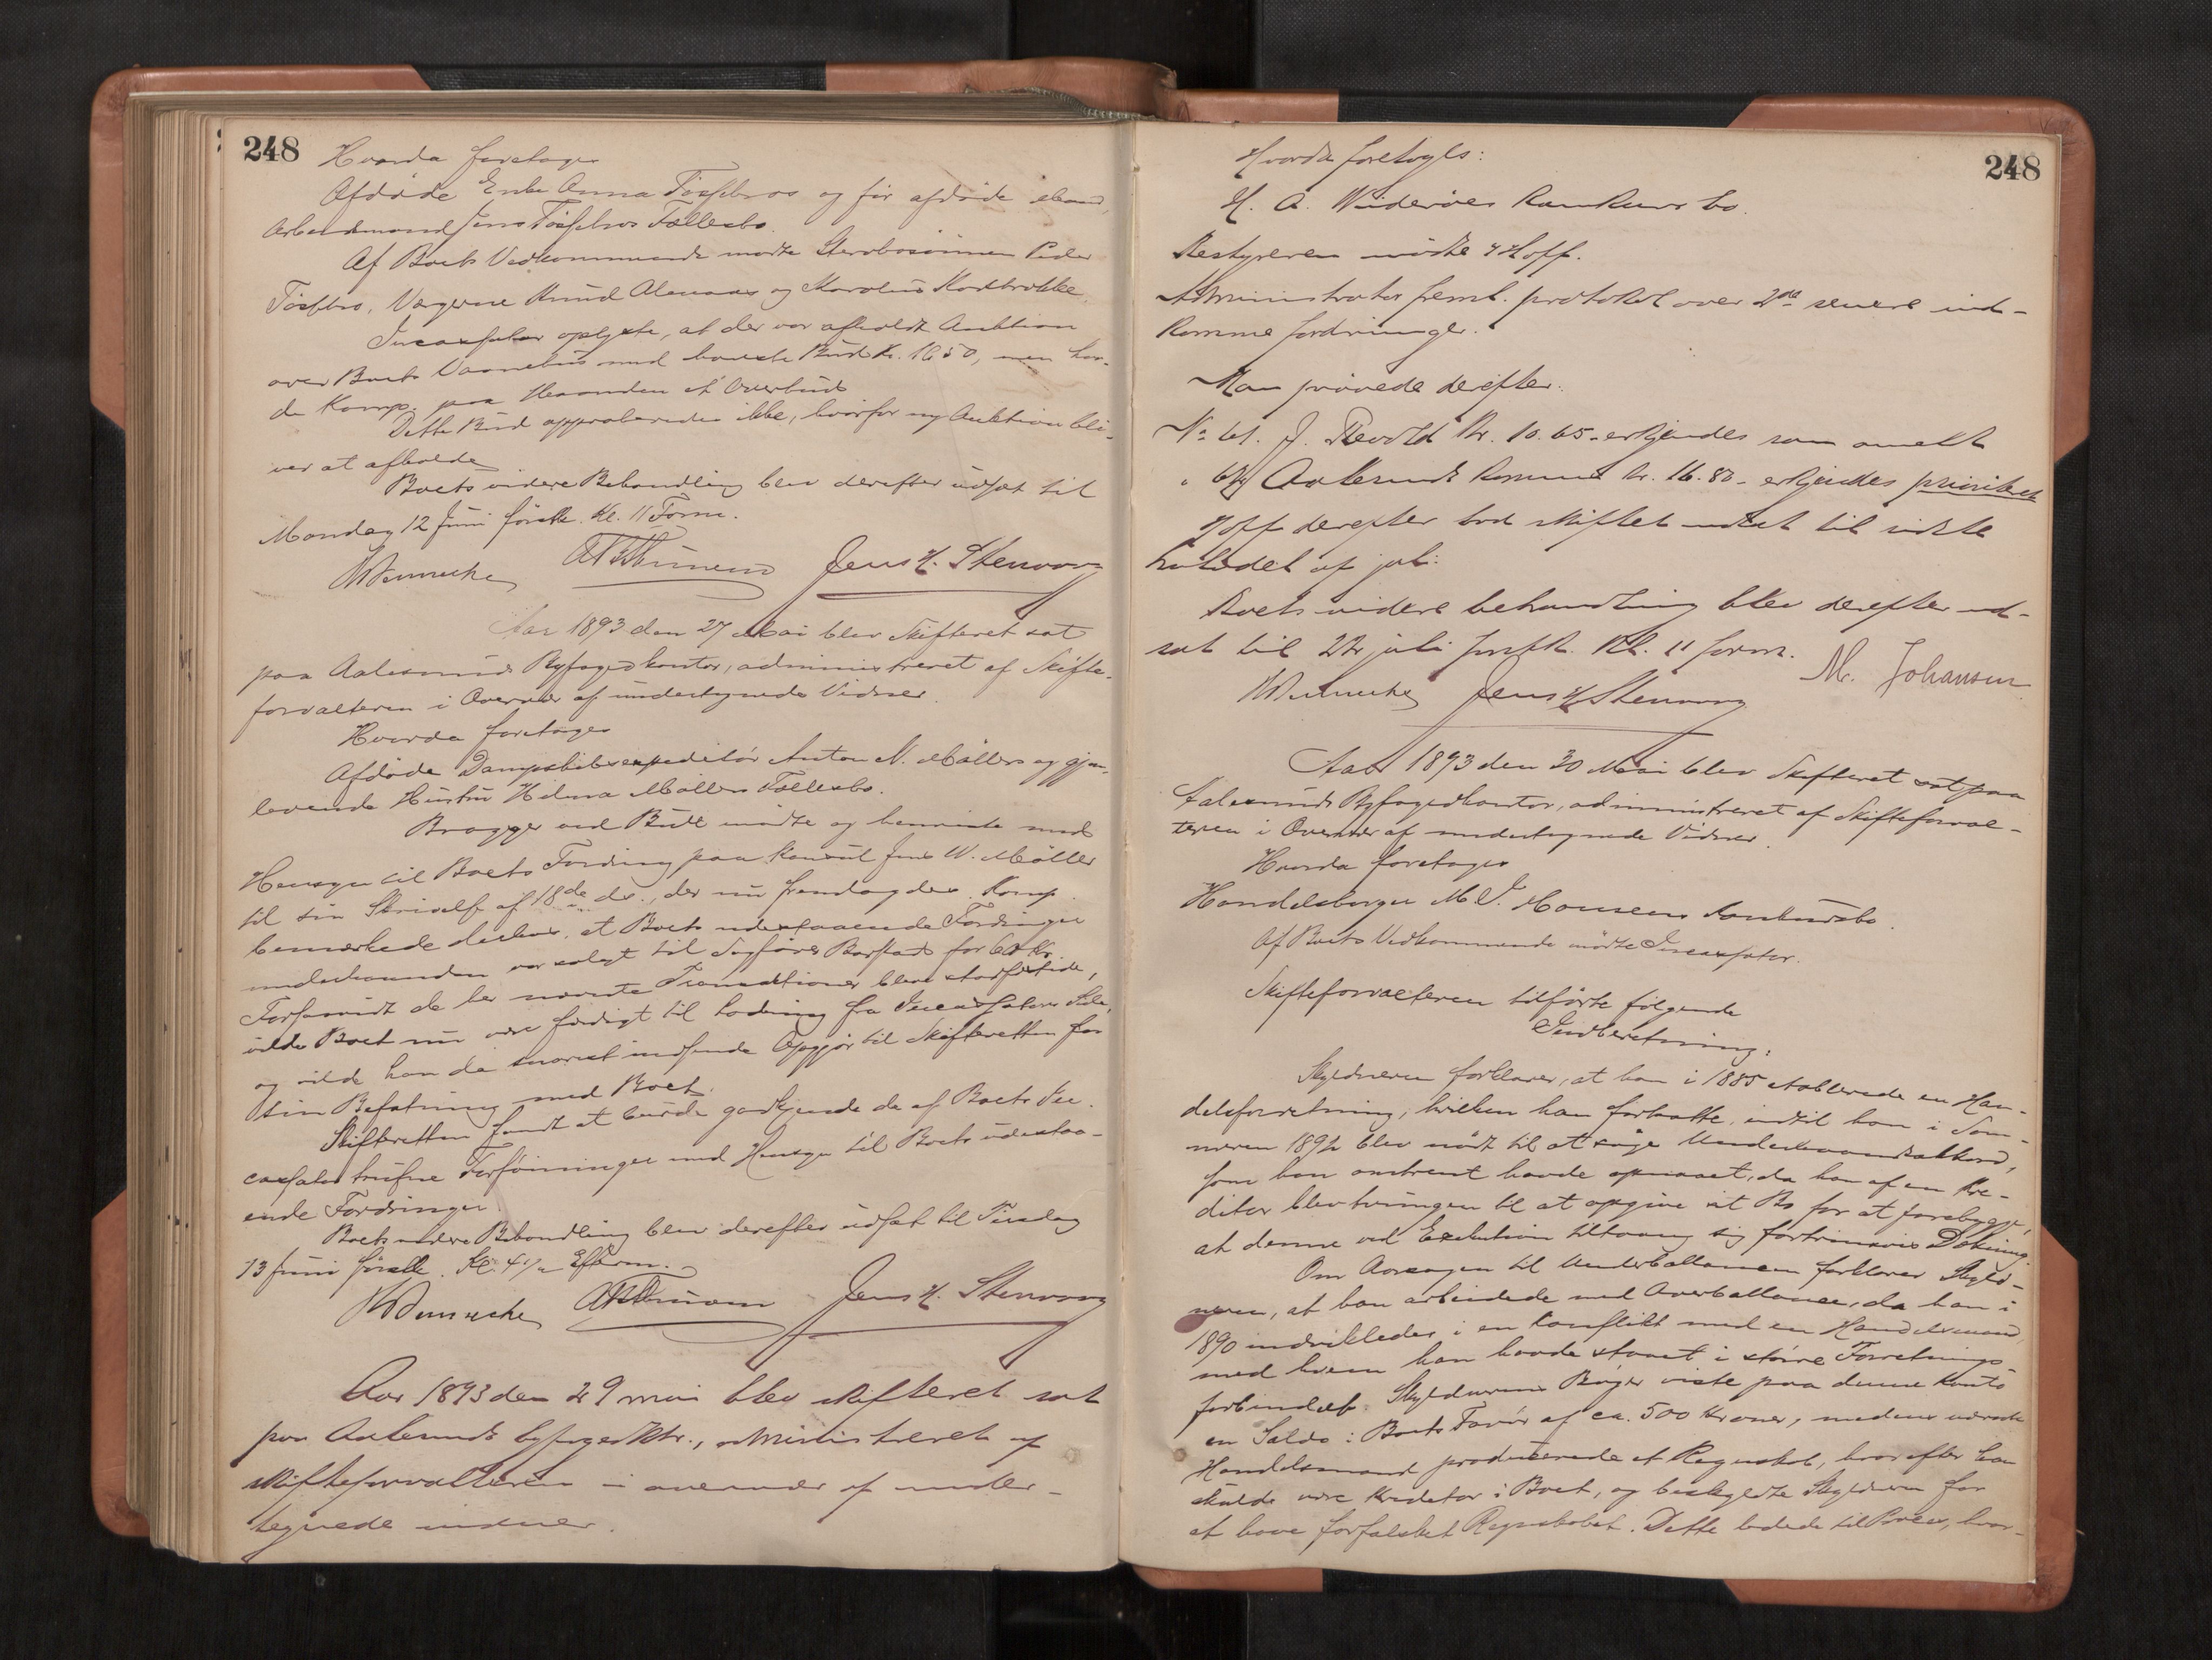 248
Hvorda foretoges
Afdøde Enke Anna Tøssebros og før afdøde Mand,
Arbeidsmand Jens Tøssebros Fællesbo.
Af Boets Vedkommende mødte Stervbosønnen Peder
Tøssebro, Vægerne Knud Alenaes og Karolius
Incassator oplyste, at der var afholdt Auktion
over Boets Vaanehus med høieste Bud Kr. 1650, men hav-
de Komp. paa Haanden et Overbud
Dette Bud approberedes ikke, hvorfor ny Auktion bli-
ver at afholde
Boets videre Behandling blev derefter udsat til
Mandag 12 Juni førstk. Kl. 11 Form.
Jens H. Stenvaag
Aar 1893 den 27 Mai blev Skifteret sat
paa Aalesunds Byfogedkontor, administreret af Skifte-
forvalteren i Overvær af undertegnede Vidner.
Hvorda foretoges
Afdøde Dampskibsexpeditør Anton N. Møllers og gjen-
levende Hustru Hilma Møllers Fællesbo.
Brogger ved Bull mødte og henviste med
Hensyn til Boets Fording paa Konsul Jens W. Møller
til sin Skrivelse af 18de ds., der nu fremlagdes. Komp.
bemærkede derhos, at Boets udestaaende Fordringer
underhaanden var solgt til Sagfører Barstad for 60 Kr.
Forsaavidt de her nævnte Transaktioner blev stadfæstede,
vilde Boet nu være færdigt til Lodning fra Incassators Side,
og vilde han da snarest indsende Opgjør til Skifteretten for
sin Befatning med Boet.
Skifteretten fandt at burde godkjende de af Boets In-
cassator trufne Forføininger med Hensyn til Boets udestaa-
ende Fordringer.
Boets videre Behandling blev derefter udsat til Tirsdag
13 Juni førstk. Kl. 4½ Efterm.
Jens H. Stenvaag
Aar 1893 den 29 mai blev skifteret sat
paa Aalesunds byfogedktr., administreret af
skifteforvalteren i overvær af under-
tegnede vidner.
248
Hvorda foretoges:
H. A. Widerøes Konkursbo.
Bestyreren mødte & Hoff.
Administrator freml. protokol over 2de senere ind-
komne fordringer.
Man prøvede derefter:
No 61. J. Devold Kr. 10.65 - erkjendes som anmeldt
" 62 Aalesunds Kommune Kr. 16.80 - erkjendes prioriteret
Hoff derefter bad skiftet udsat til sidste
halvdel af juli.
Boets videre behandling blev derefter ud-
sat til 22 juli førstk. Kl. 11 form.
M. Johansen
Jens H Stenvaag
Aar 1893 den 30 Mai blev Skifteret sat paa
Aalesunds Byfogedkontor, administreret af Skifteforval-
teren i Overvær af undertegnede Vidner.
Hvorda foretoges
Handelsborger M. J. Konkursbo.
Af Boets Vedkommende mødte Incassator.
Skifteforvalteren tilførte følgende
Indberetning:
Skyldneren forklarer, at han i 1885 etablerede en Han-
delsforretning, hvilken han fortsatte, indtil han i Som-
meren 1892 blev nødt til at søge Underhaandsakkord,
som han omtrent havde opnaaet, da han af en Kre-
ditor blev tvungen til at opgive sit Bo for at forebygge,
at denne ved Exekution tiltvang sig fortrinsvis Dekning
Om Aarsagen til Underballancen forklarer Skyld-
neren, at han arbeidede med Overballance, da han i
1890 indvikledes i en Konflikt med en Handelsmand,
med hvem han havde staaet i større Forretnings-
forbindelse. Skyldnerens Bøger viste paa denne Konto
en Saldo i Boets Favør af ca. 500 Kroner, medens nævnte
Handelsmand producerede et Regnskab, hvorefter han
skulde være Kreditor i Boet, og beskyldte Skyldneren for
at have forfalsket Regnskabet. Dette ledede til Proces, hvor-